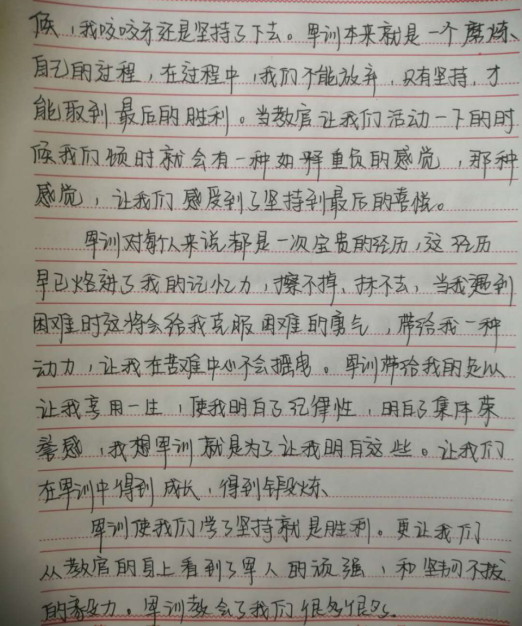 候，我咬咬牙还是坚持了下去。军训本来就是一个磨炼、
自己的过程，在过程中，我们不能放弃，只有坚持，才
能取到最后的胜利。当教官让我们活动一下的时
候我们顿时就会有一种如释重负的感觉，那种
感觉，让我们感受到了坚持到最后的喜悦。
军训对每个人来说都是一次宝贵的经历，这经历
早已烙进了我的记忆力，擦不掉、抹不去，当我遇到
困难时这将会给我克服困难的勇气，带给我一种
动力，让我在苦难中心不会摇曳。军训带给我的足以
让我享用一生，使我明白了纪律性，明白了集体荣
誉感，我想军训就是为了让我明白这些。让我们
在军训中得到成长，得到锻炼、
军训使我们学了坚持就是胜利。更让我们
从教官的身上看到了军人的顽强，和坚韧不拔
的毅力。军训教会了我们很多很多。